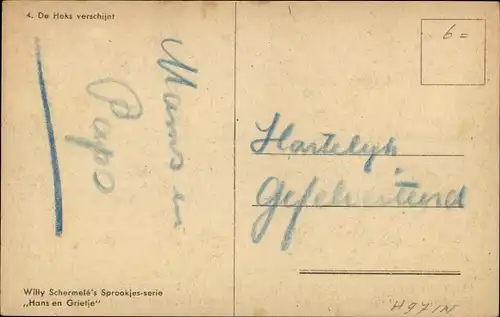 4. De Heks verschijnt
Mams en
Papa
Willy Schermelé's Sprookjes-serie
„Hans en Grietje"
6 =
Hartelyk
Gefeliciteerd
H971N